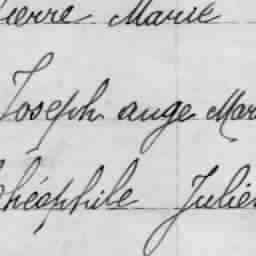 Pierre Marie
Joseph ange Mar
Théophile Julien